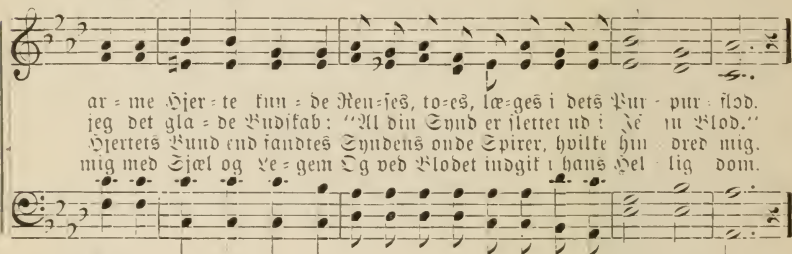 ar = me Hjer = te kun = de Ren=ses, to=es, læ=ges i dets Pur = pur = flod.
jeg det gla = de Budskab: "Al din Synd er slettet ud i Je su Blod."
Hjertets Bund end fandtes Syndens onde Spirer, hvilke hin dred mig.
mig med Sjæl og Le = gem Og ved Blodet indgik i hans Hel lig dom.